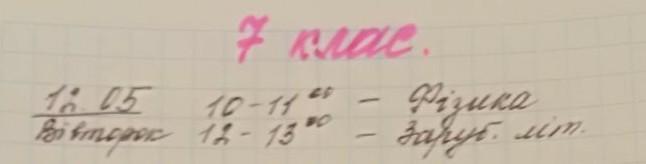 7 клас.
12.05 10-11⁰⁰ - Фізика
Вівторок 12-13⁰⁰ - Заруб. літ.